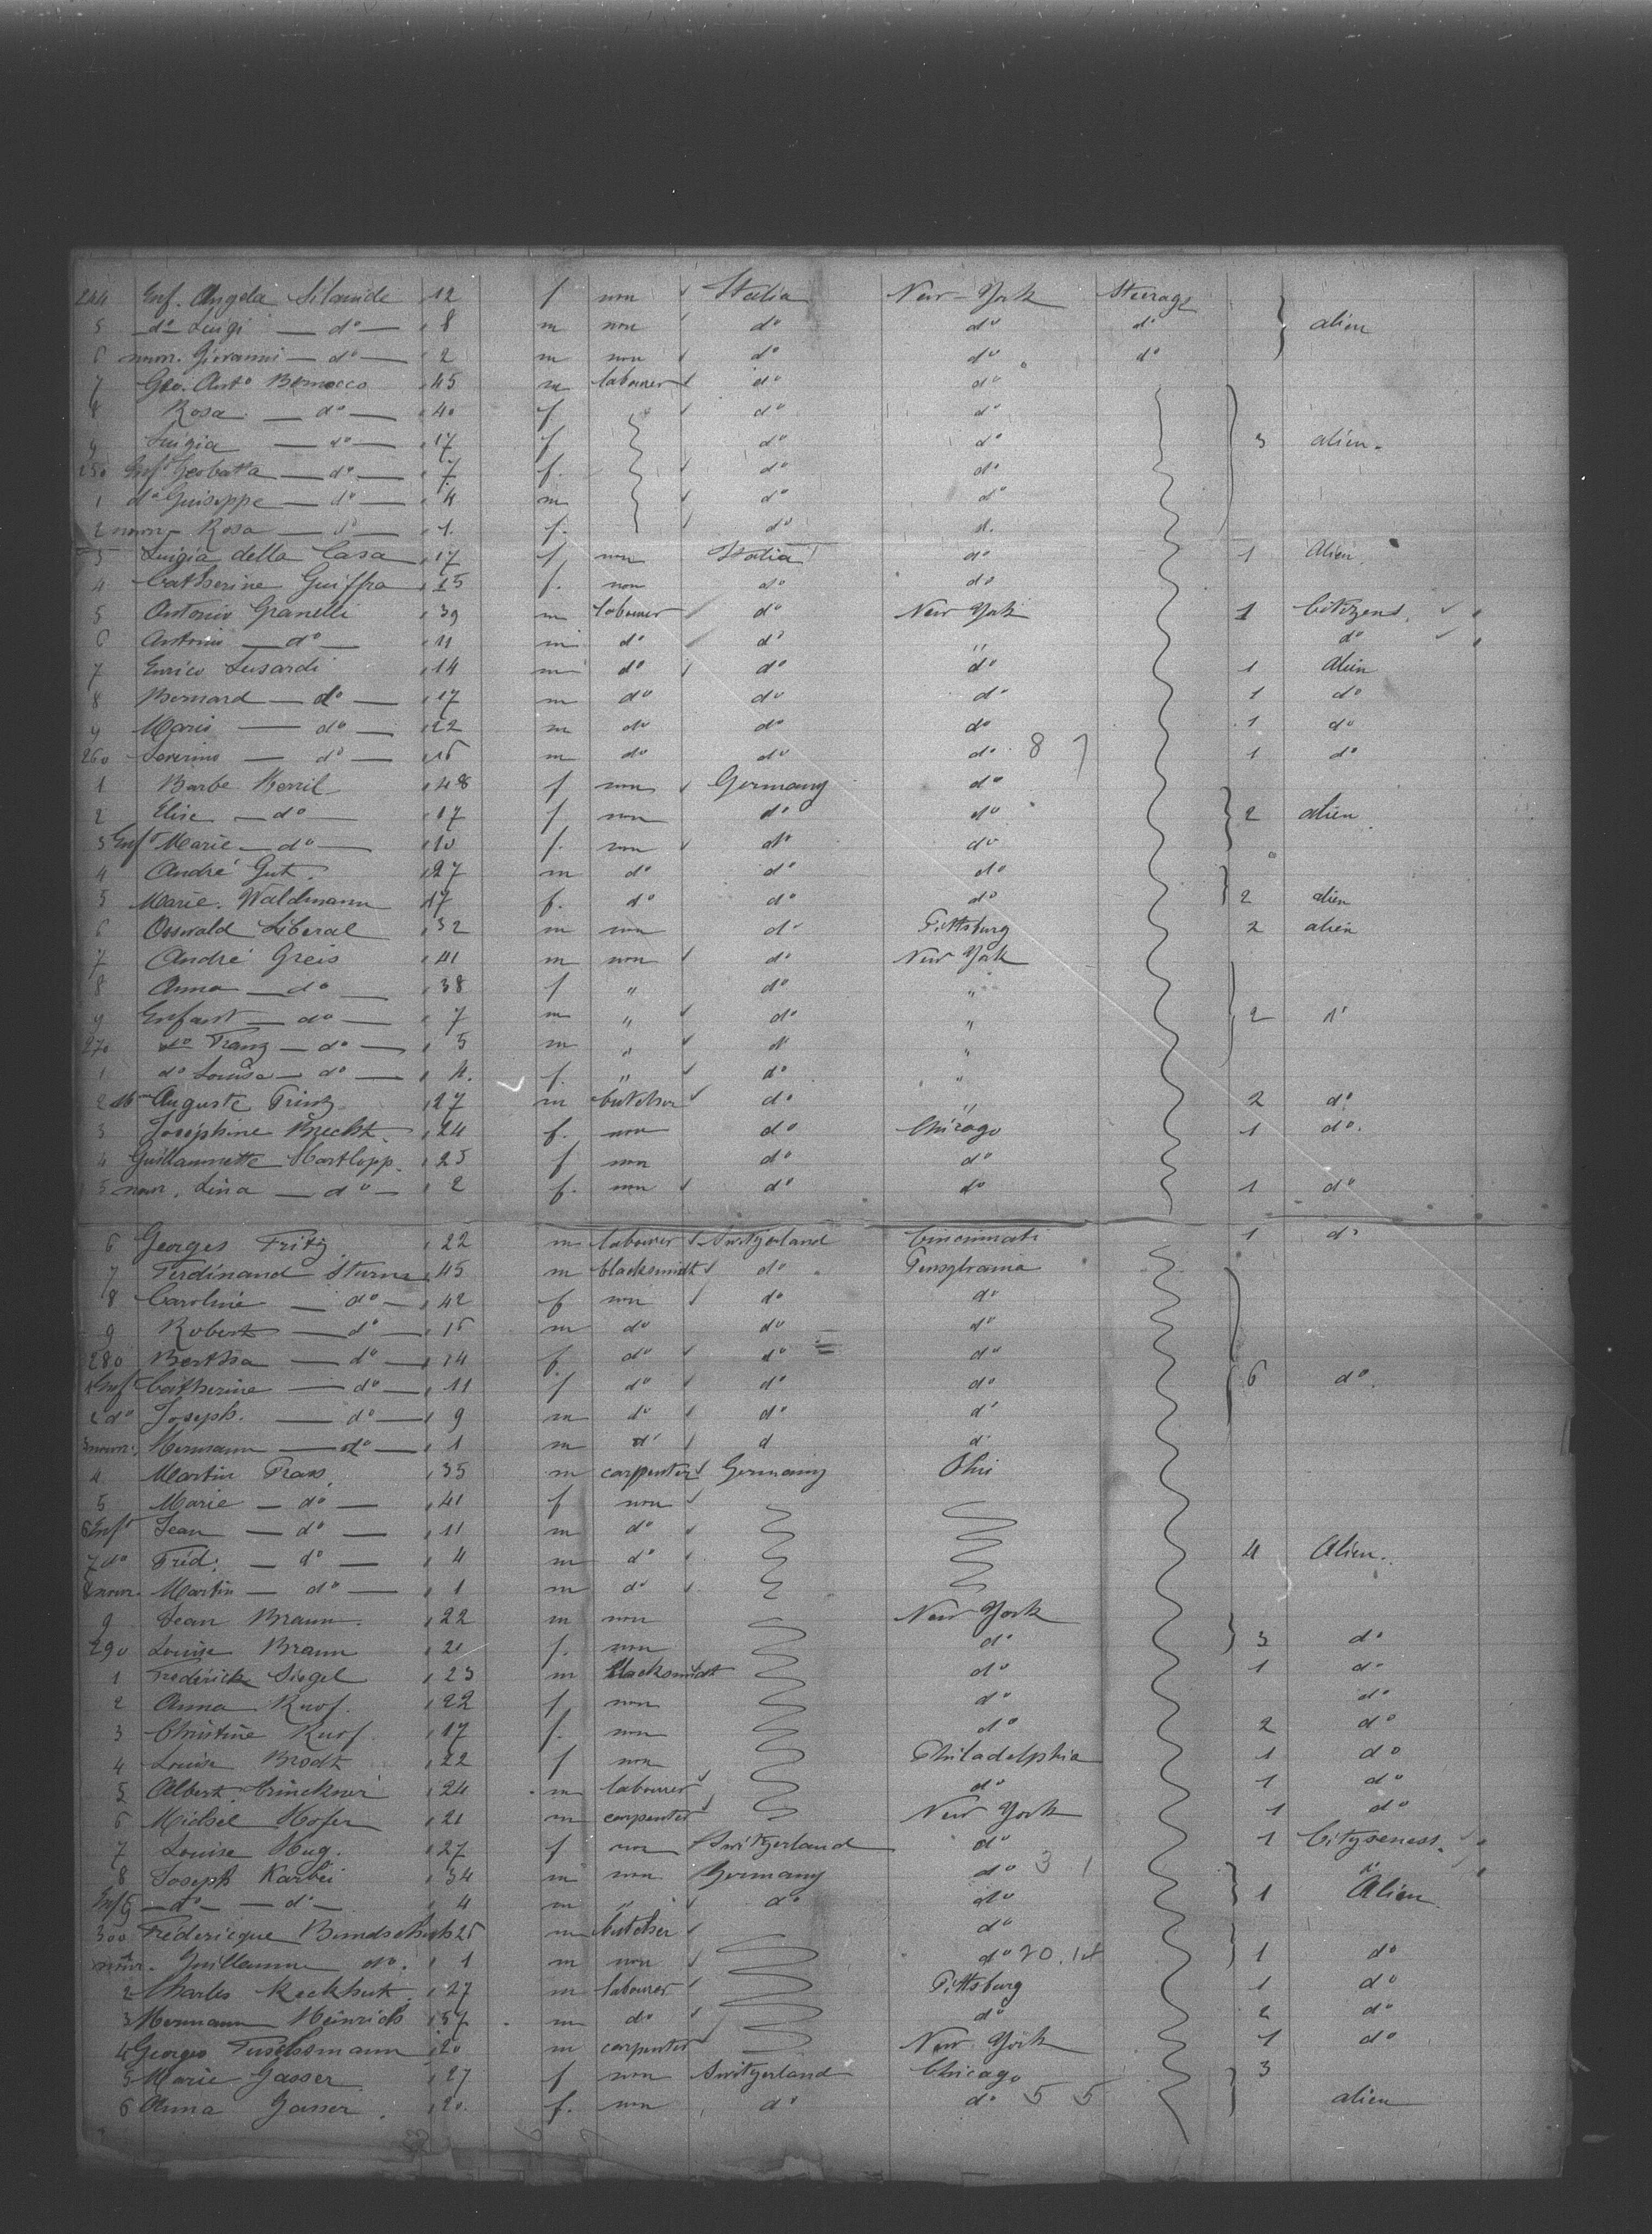 244 Enf. Angela Silamide 12 f non Italia New-York Steerage
5 do Luigi — do — 8 m non do do do alien
6 nourr. Giovanni — do — 2 m non do do do
7 Gio. Anto Bomocco 45 m labourer do do
8 Rosa — do — 40 f do do
9 Luigia — do — 17 f do do 3 alien
250 Enft Geobatta — do — 7 f. do do
1 do Guiseppe — do — 4 m do do
2 nourr. Rosa — do — 1 f. do d.
3 Luigia della Casa 17 f non Italia do 1 Alien
4 Catherine Guiffra 15 f. non do do
5 Antonio Granelli 39 m labourer do New York 1 Citizens
6 Antonio — do — 11 m do do " do
7 Enrico Lusardi 14 m do do do 1 Alien
8 Bernard — do — 17 m do do do 1 do
9 Mario — do — 22 m do do do 1 do
260 Severino — do — 15 m do do do 8 7 1 do
1 Barbe Kerril 48 f non Germany do
2 Elise — do — 17 f non do do 2 alien
3 Enft Marie — do — 10 f. non do do
4 André Gut. 27 m do do do
5 Marie. Waldmann 17 f. do do do 2 alien
6 Osswald Liberal 32 m non do Pittsburg 2 alien
7 André Greis 41 m non do New York
8 Anna — do — 38 f " do "
9 Enfant — do — 7 m " do " 2 d'
270 do Franz — do — 5 m " d' "
1 do Louisa — do — 4. f. " do "
2 Auguste Printz 27 m butcher do " 2 do
3 Joséphine Brecht 24 f. non do Chicago 1 do.
4 Guillaumette Hartlopp. 25 f non do do
5 nour. Lina — do — 2 f. non do do 1 do
6 Georges Fritz 22 m labourer Switzerland Cincinnati 1 do
7 Ferdinand Sturm 45 m blacksmidt do Pensylvania
8 Caroline — do — 42 f non do do
9 Robert — do — 15 m do do do
280 Bertha — do — 14 f do do do
1 Enft Catherine — do — 11 f do do do 6 do.
2 do Joseph. — do — 9 m do do d'
3 nourr. Hermann — do — 1 m d' d d'
4 Martin Frass 35 m carpenter Germany Ohio
5 Marie — do — 41 f non
6 Enft Jean — do — 11 m do
7 do Fréd. — do — 4 m do 4 Alien.
8 nour. Martin — do — 1 m do
9 Jean Braun 22 m non New York
290 Louise Braun 21 f. non do 3 do
1 Frederick Siegel 23 m blacksmidt do 1 do
2 Anna Ruof. 22 f non do do
3 Christine Ruof 17 f. non do 2 do
4 Louise Brodt 22 f non Philadelphia 1 do
5 Albert 24 m labourer do 1 do
6 Michel Hofer 21 m carpenter New York 1 do
7 Louise Hug. 27 f non Switzerland do 1 Cityseness.
8 Joseph Karbei 34 m non Germany do 3 1 d'
Enf 9 — do — do — 4 m " do do 1 Alien
300 Fréderieque Bundschuh 25 m butcher do
1 nour. Guillaume do. 1 m non do 20.14 1 do
2 Charles Keckhut 27 m labourer Pittsburg 1 do
3 Hermann Heinrich 57 m do do 2 do
4 Georges 20 m carpenter New York 1 do
5 Marie Gasser 27 f non Switzerland Chicago 3
6 Anna Gasser 20 f. non do do 5 5 alien